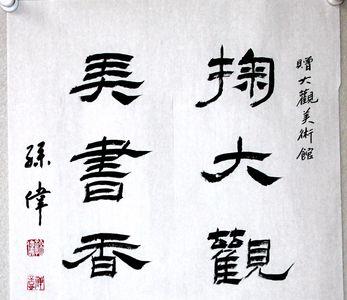 贈大觀美術館
掬大觀
美書香
孫偉